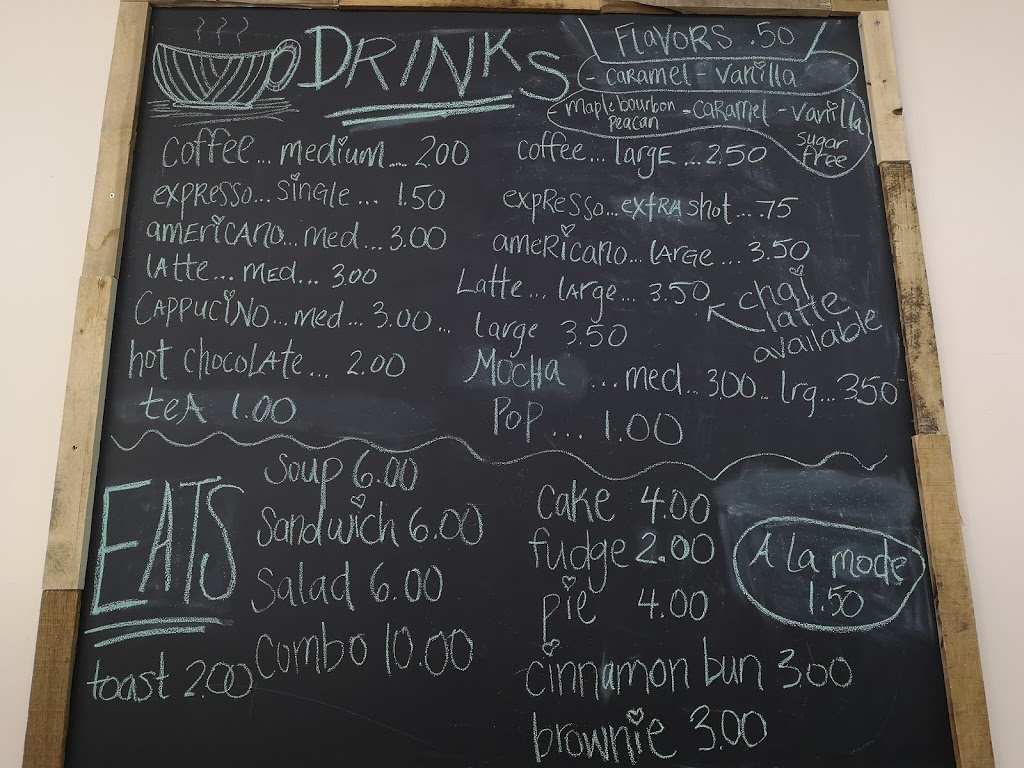 DRINKS
FLAVORS .50
- CARAMEL - VANILLA
maple bourbon peacan - CARAMEL - VANILLA
sugar free
coffee... medium.... 200
coffee... large ...2.50
expresso... single ... 1.50
expresso...extra shot...75
americano...med...3.00
americano...large ...3.50
latte... med... 3.00
Latte... large... 3.50
chai latte available
Cappucino...med...3.00... large 3.50
hot chocolate... 2.00
Mocha ...med...3.00.. lrg...3.50
tea 1.00
Pop ... 1.00
EATS
soup 6.00
sandwich 6.00
Salad 6.00
Combo 10.00
toast 2.00
cake 4.00
fudge 2.00
pie 4.00
A La mode 1.50
cinnamon bun 3.00
brownie 3.00